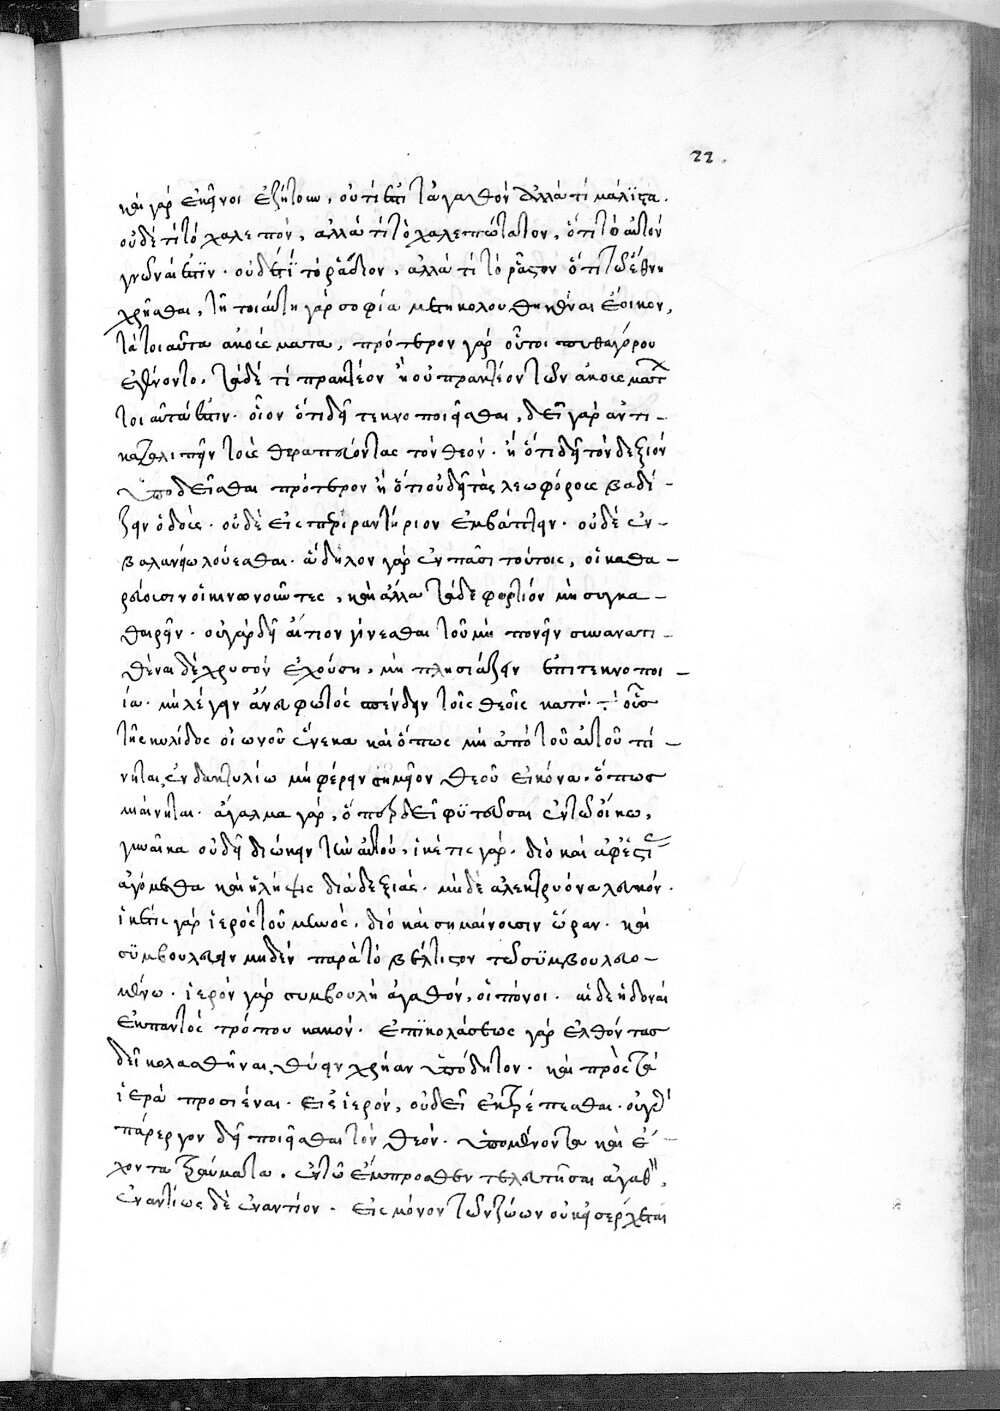 22.
καὶ γὰρ ἐκεῖνοι ἐζήτουν, οὐ τί ἐστι τἀγαθόν ἀλλὰ τί μάλιστα.
οὐδὲ τί τὸ χαλεπόν, ἀλλὰ τί τὸ χαλεπώτατον, ὅτι τὸ αὑτὸν
γνῶναί ἐστιν. οὐδὲ τί τὸ ῥᾴδιον, ἀλλὰ τί τὸ ῥᾷστον ὅτι τῷ ἔθει
χρῆσθαι, τῇ τοιαύτῃ γὰρ σοφία μετηκολουθηκέναι ἔοικεν,
τὰ τοιαῦτα ἀκούσματα, πρότερον γὰρ οὗτοι πυθαγόρου
ἐγένοντο. τὰ δὲ τί πρακτέον ἢ οὐ πρακτέον τῶν ἀκουσμάτων
τοιαῦτά ἐστιν. οἷον ὅτι δεῖ τεκνοποιεῖσθαι, δεῖ γὰρ ἀντι-
καταλιπεῖν τοὺς θεραπεύοντας τὸν θεόν. ἢ ὅτι δεῖ τὸν δεξιὸν
ὑποδεῖσθαι πρότερον ἢ ὅτι οὐ δεῖ τὰς λεωφόρους βαδί-
ζειν ὁδούς. οὐδὲ εἰς περιραντήριον ἐμβάπτειν. οὐδὲ ἐν
βαλανείῳ λούεσθαι. ἄδηλον γὰρ ἐν πᾶσι τούτοις, οἱ καθα-
ρεύουσιν οἱ κοινωνοῦντες, καὶ ἄλλα τάδε φορτίον μὴ συγκα-
θαιρεῖν. οὐ γὰρ δεῖ αἴτιον γίνεσθαι τοῦ μὴ πονεῖν συνανατι-
θέναι δὲ χρυσὸν ἐχούσῃ, μὴ πλησιάζειν ἐπὶ τεκνοποι-
ία. μὴ λέγειν ἄνευ φωτὸς σπένδειν τοῖς θεοῖς κατὰ τὸ οὖς
τῆς κυλίδος οἰωνοῦ ἕνεκα καὶ ὅπως μὴ ἀπὸ τοῦ αὐτοῦ πί-
νηται, ἐν δακτυλίω μὴ φέρειν σημεῖον θεοῦ εἰκόνα. ὅπως
μιαίνηται. ἄγαλμα γὰρ, ὅπερ δεῖ φυτεῦσαι ἐν τῷ οἴκω,
γυναῖκα οὐ δεῖ διώκειν τὴν αὑτοῦ, ἱκέτις γάρ. διὸ καὶ ἀφ' ἑστίας
ἀγόμεθα καὶ ἡ λῆψις διὰ δεξιᾶς. μηδὲ ἀλεκτρυόνα λευκόν.
ἱκέτης γὰρ ἱερὸς τοῦ μηνός. διὸ καὶ σημαίνουσιν ὥραν. καὶ
συμβουλεύειν μηδὲν παρὰ τὸ βέλτιστον τῷ συμβουλευο-
μένω. ἱερὸν γὰρ συμβουλὴ ἀγαθόν, οἱ πόνοι. αἱ δὲ ἡδοναὶ
ἐκ παντὸς τρόπου κακόν. ἐπὶ κολάσεως γὰρ ἐλθόντας
δεῖ κολασθῆναι, θύειν χρὴ ἀνυπόδητον. καὶ πρὸς τὰ
ἱερὰ προσιέναι. εἰς ἱερόν, οὐ δεῖ ἐκτρέπεσθαι. οὐ γὰρ
πάρεργον δεῖ ποιεῖσθαι τὸν θεόν. ὑπομένοντα καὶ ἔ-
χοντα τραύματα. ἐν τῷ ἔμπροσθεν τελευτῆσαι ἀγαθὸν,
ἐναντίως δὲ ἐναντίον. εἰς μόνον τῶν ζώων οὐκ εἰσέρχεται